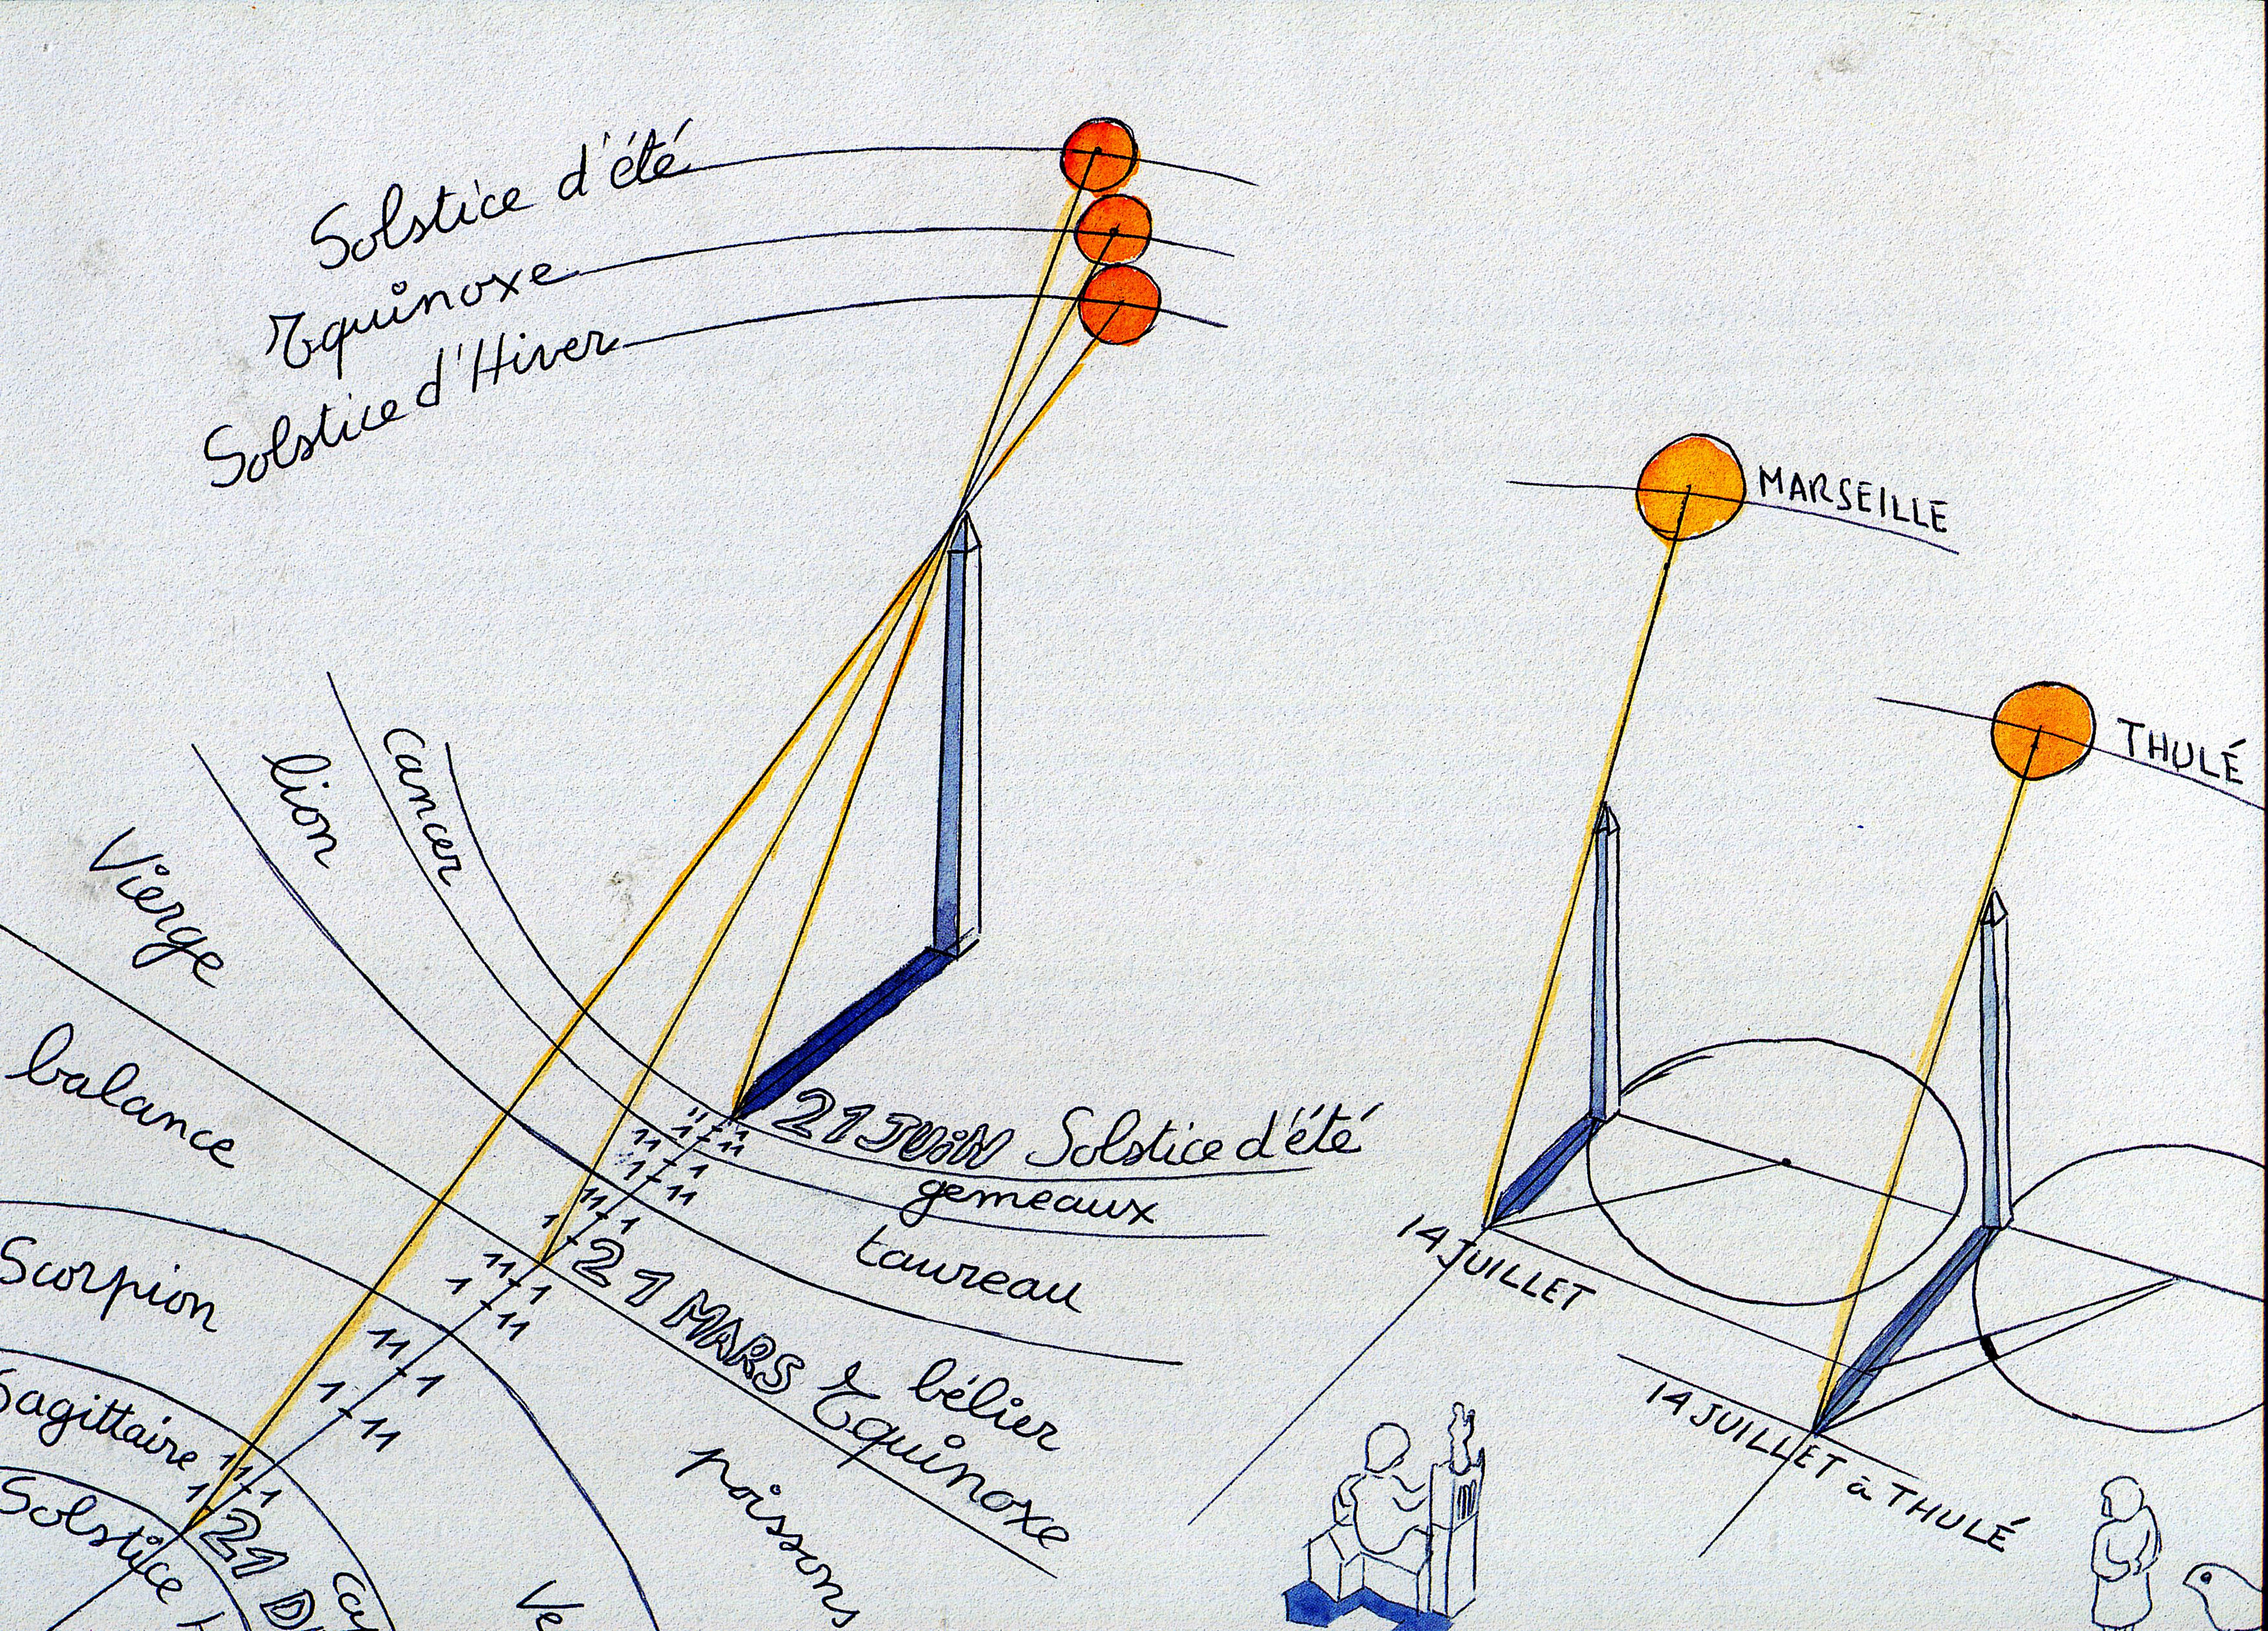 Solstice d'été
Equinoxe
Solstice d'Hiver
MARSEILLE
THULÉ
cancer
lion
Vierge
balance
Scorpion
Sagittaire
Solstice
21 JUiN Solstice d'été
gemeaux
taureau
21 MARS Equinoxe
bélier
poissons
Ve
21 D
Ca
14 JUILLET
14 JUILLET à THULÉ